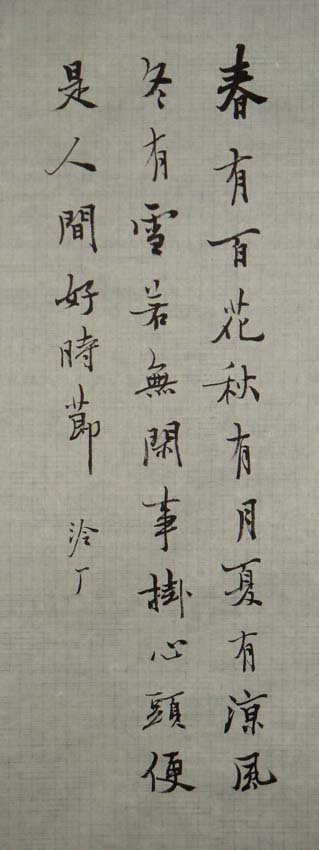 春有百花秋有月夏有涼風
冬有雪若無閑事掛心頭便
是人間好時節
泠丁